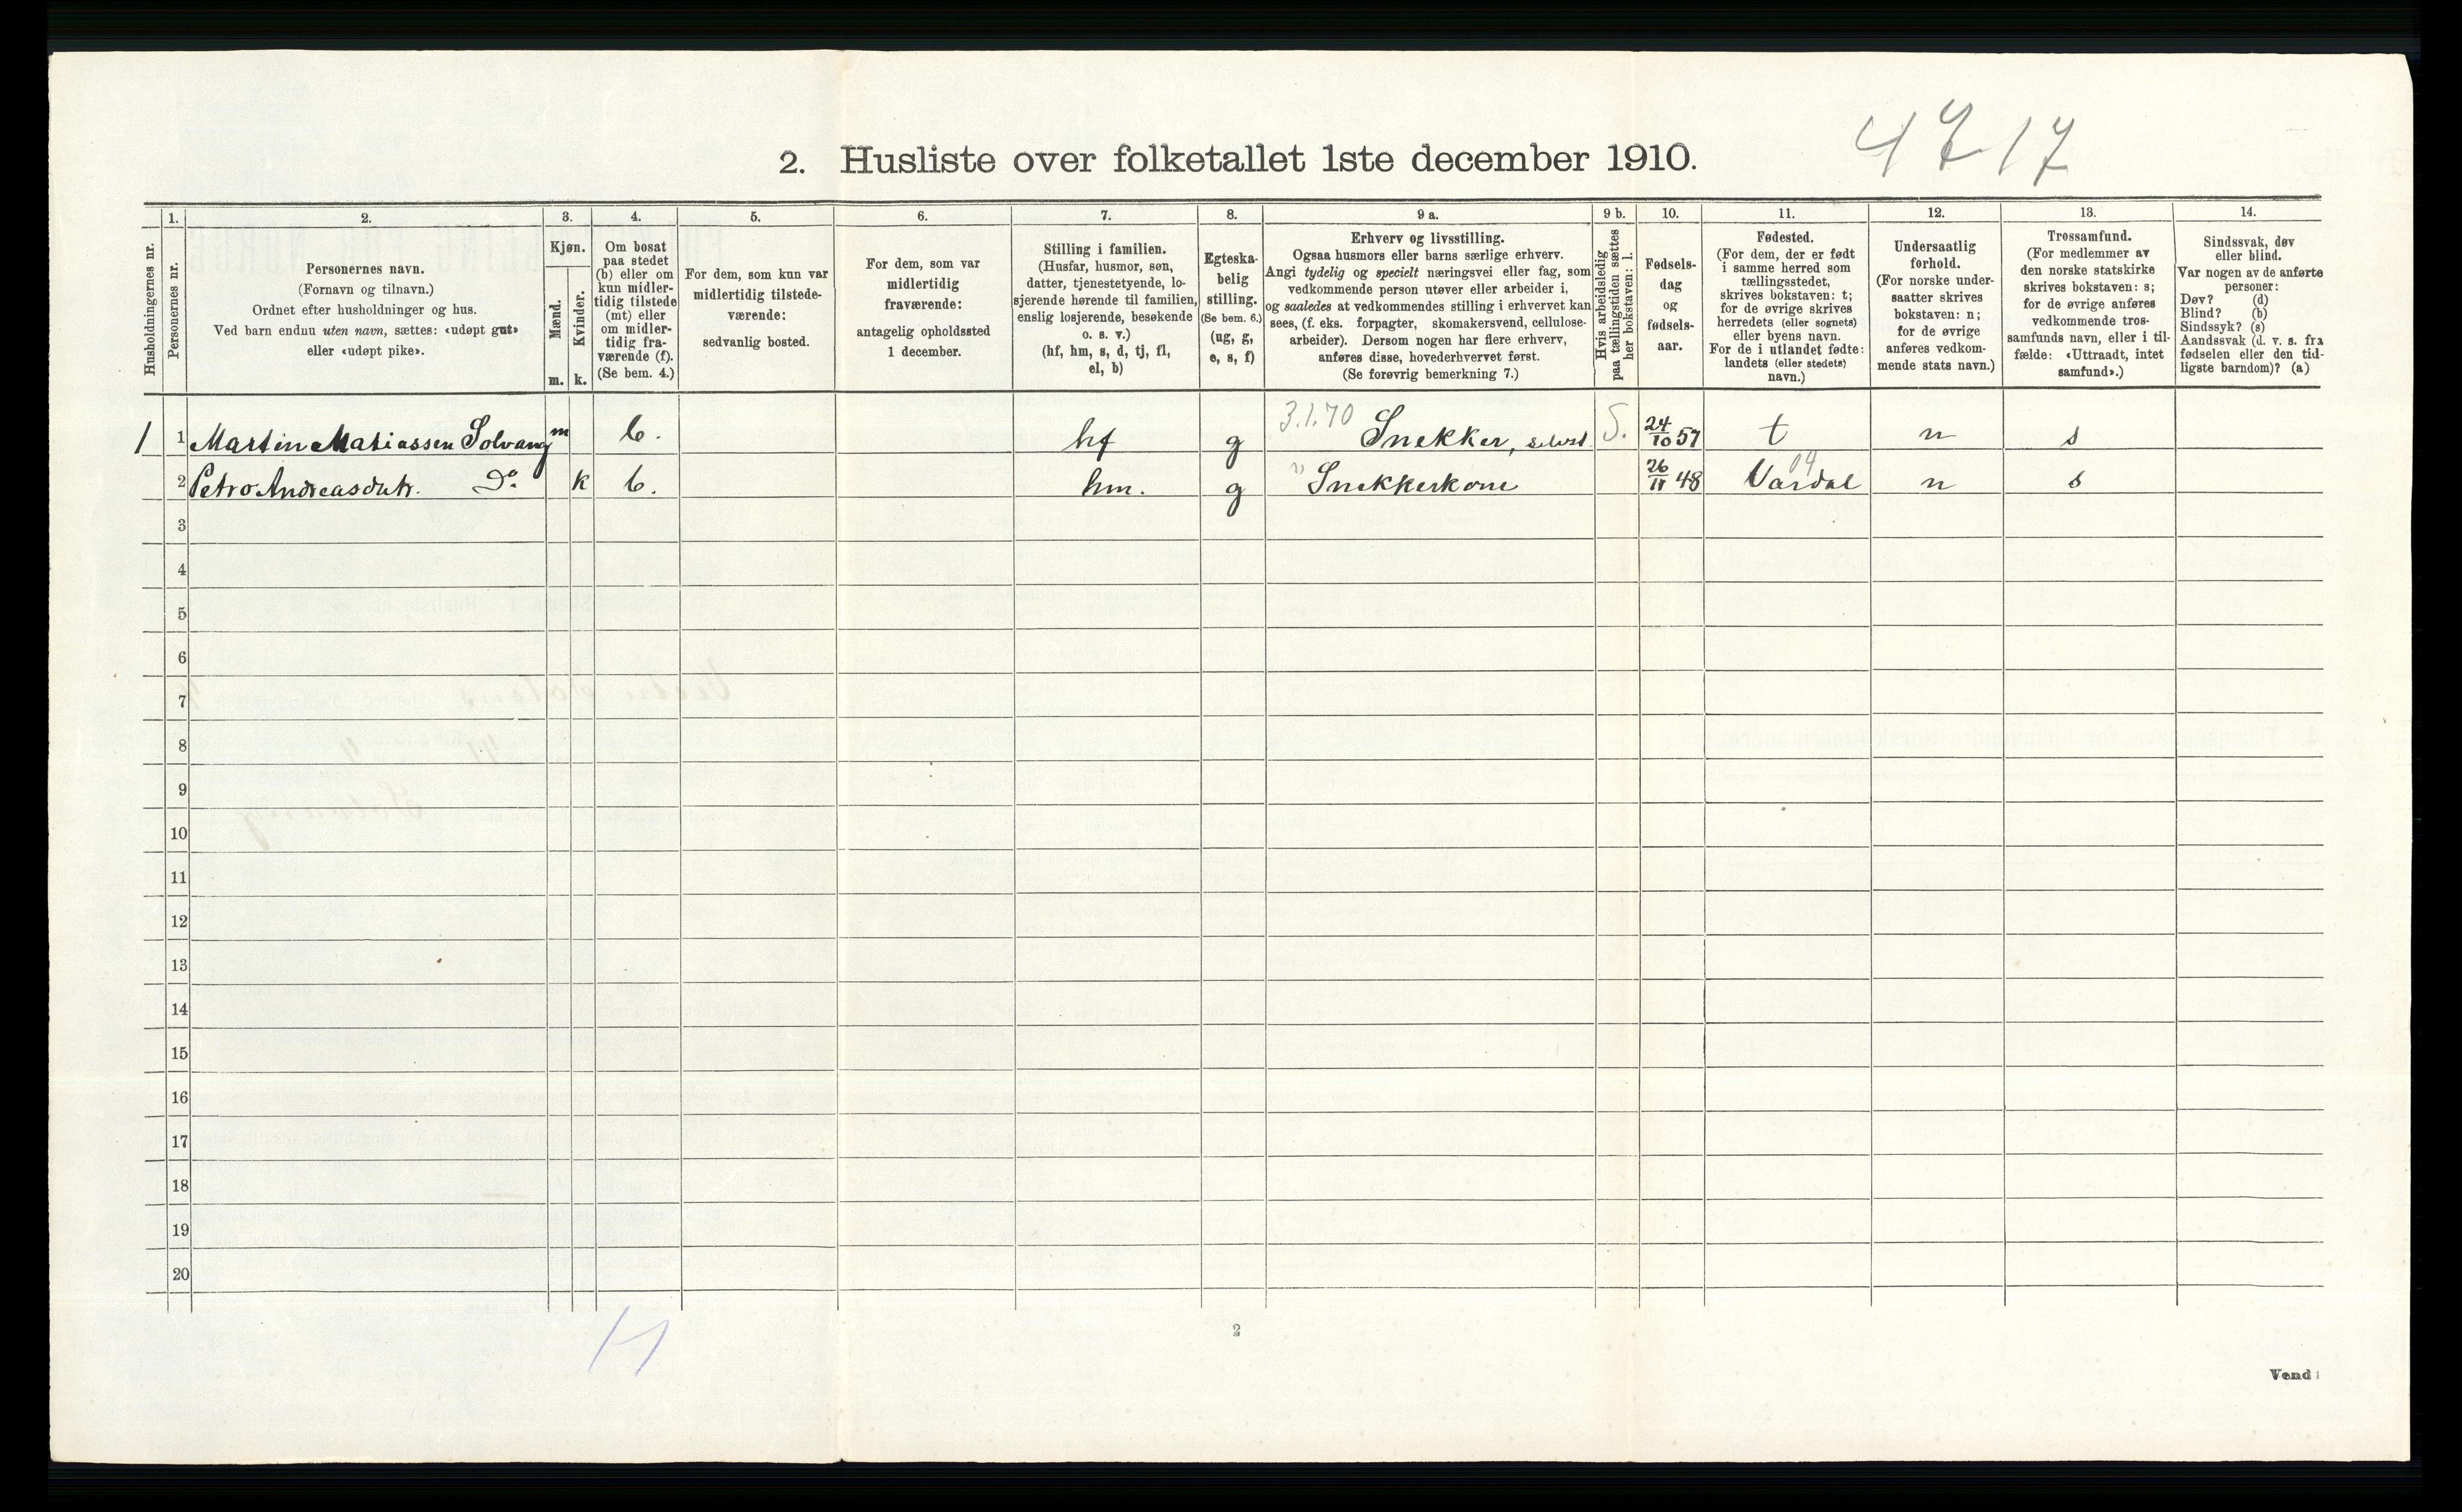 4717
2. Husliste over folketallet 1ste december 1910.
Husholdningernes nr.
1.
Personernes nr.
2.
Personernes navn.
(Fornavn og tilnavn.)
Ordnet efter husholdninger og hus.
Ved barn endnu uten navn, sættes: «udøpt gut»
eller «udøpt pike».
3.
Kjøn.
Mænd.
Kvinder.
m. k.
4.
Om bosat
paa stedet
(b) eller om
kun midler-
tidig tilstede
(mt) eller
om midler-
tidig fra-
værende (f).
(Se bem. 4.)
5.
For dem, som kun var
midlertidig tilstede-
værende:
sedvanlig bosted.
6.
For dem, som var
midlertidig
fraværende:
antagelig opholdssted
1 december.
7.
Stilling i familien.
(Husfar, husmor, søn,
datter, tjenestetyende, lo-
sjerende hørende til familien,
enslig losjerende, besøkende
o. s. v.)
(hf, hm, s, d, tj, fl,
el, b)
8.
Egteska-
belig
stilling.
(Se bem. 6.)
(ug, g,
e, s, f)
9 a.
Erhverv og livsstilling.
Ogsaa husmors eller barns særlige erhverv.
Angi tydelig og specielt næringsvei eller fag, som
vedkommende person utøver eller arbeider i,
og saaledes at vedkommendes stilling i erhvervet kan
sees, (f. eks. forpagter, skomakersvend, cellulose-
arbeider). Dersom nogen har flere erhverv,
anføres disse, hovederhvervet først.
(Se forøvrig bemerkning 7.)
9 b.
Hvis arbeidsledig
paa tællingstiden sættes
her bokstaven: l.
10.
Fødsels-
dag
og
fødsels-
aar.
11.
Fødested.
(For dem, der er født
i samme herred som
tællingsstedet,
skrives bokstaven: t;
for de øvrige skrives
herredets (eller sognets)
eller byens navn.
For de i utlandet fødte:
landets (eller stedets)
navn.)
12.
Undersaatlig
forhold.
(For norske under-
saatter skrives
bokstaven: n;
for de øvrige
anføres vedkom-
mende stats navn.)
13.
Trossamfund.
(For medlemmer av
den norske statskirke
skrives bokstaven: s;
for de øvrige anføres
vedkommende tros-
samfunds navn, eller i til-
fælde: «Uttraadt, intet
samfund».)
14.
Sindssvak, døv
eller blind.
Var nogen av de anførte
personer:
Døv? (d)
Blind? (b)
Sindssyk? (s)
Aandssvak (d. v. s. fra
fødselen eller den tid-
ligste barndom)? (a)
1 1 Martin Matiassen Solvang m b. hf g 3.1.70 Snekker, selvst. S. 24/10 57 t n s
2 Petro Andreasdatr. Do k b. hm. g Snekkerkone 26/11 48 Vardal 04 n s
3
4
5
6
7
8
9
10
11
12
13
14
15
16
17
18
19
20
2
Vend!